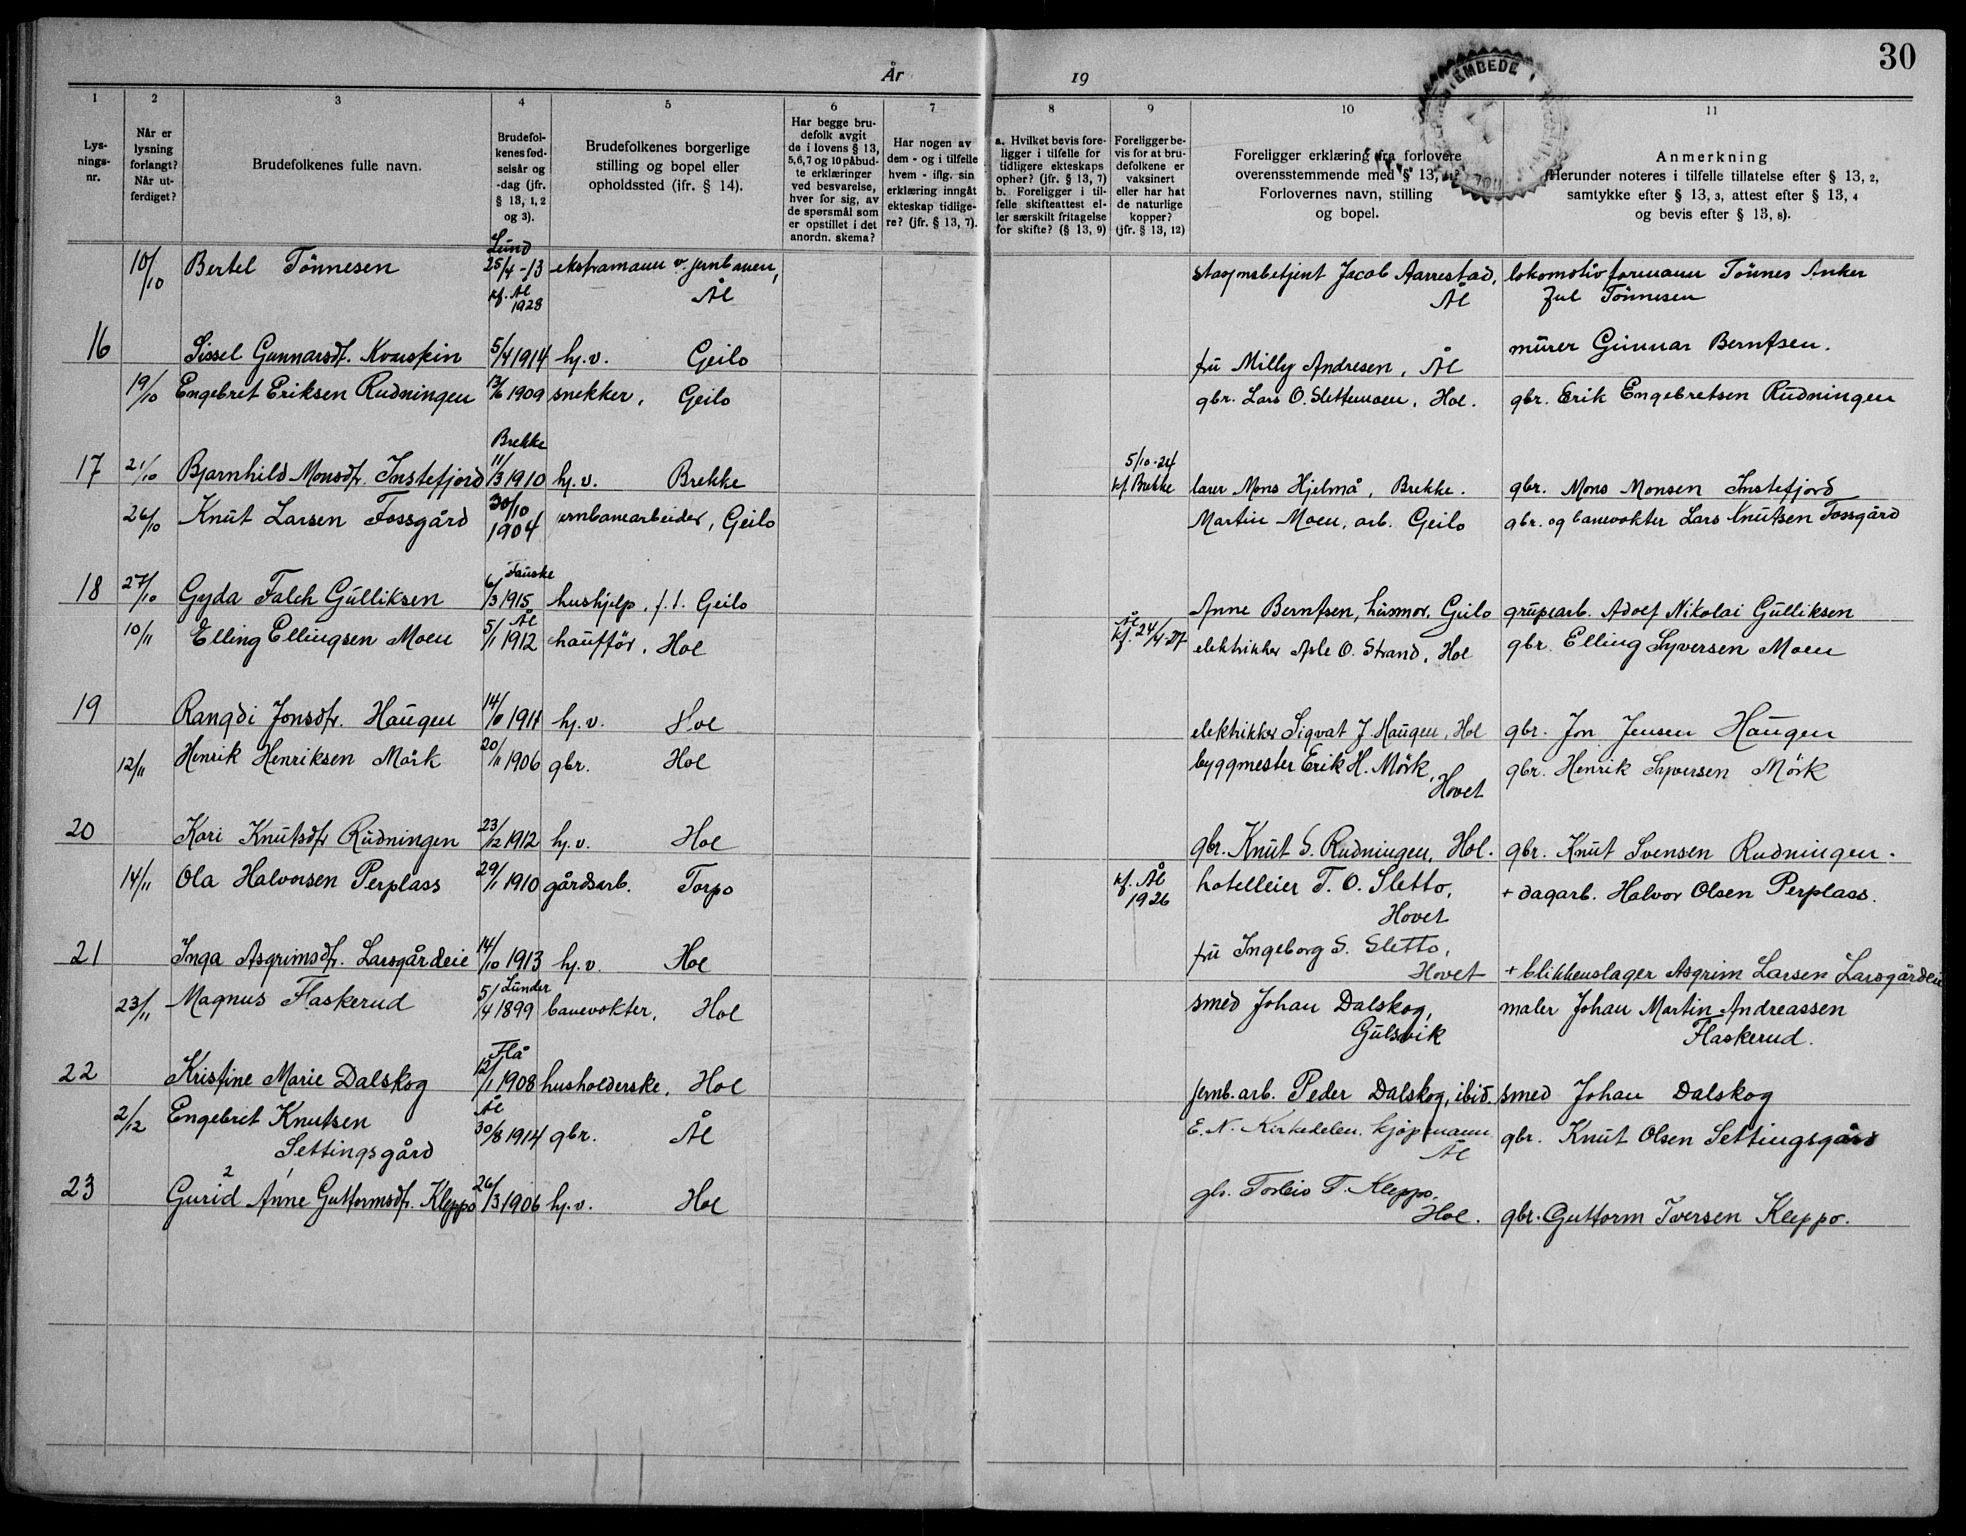 30
År 19
1 2 3 4 5 6 7 8 9 10 11
Lysningsnr.
Når er lysning forlangt? Når utferdiget?
Brudefolkenes fulle navn.
Brudefolkenes fødselsår og -dag (jfr. § 13, 1, 2 og 3).
Brudefolkenes borgerlige stilling og bopel eller opholdssted (ifr. § 14).
Har begge brudefolk avgit de i lovens § 13, 5, 6, 7 og 10 påbudte erklæringer ved besvarelse, hver for sig, av de spørsmål som er opstillet i det anordn. skema?
Har nogen av dem - og i tilfelle hvem - iflg. sin erklæring inngåt ekteskap tidligere? (jfr. § 13, 7).
a. Hvilket bevis foreligger i tilfelle for tidligere ekteskaps ophør? (jfr. § 13, 7) b. Foreligger i tilfelle skifteattest eller særskilt fritagelse for skifte? (§ 13, 9)
Foreligger bevis for at brudefolkene er vaksinert eller har hat de naturlige kopper? (jfr. § 13, 12)
Foreligger erklæring fra forlovere overensstemmende med § 13, 11? Forlovernes navn, stilling og bopel.
Anmerkning (Herunder noteres i tilfelle tillatelse efter § 13, 2, samtykke efter § 13, 3, attest efter § 13, 4 og bevis efter § 13, 8).
EMBEDE
Lund
10/10 Bertel Tönnesen 25/4-13 ekstramann v. jernbanen, Ål
kf. Ål 1928
stasjonsbetjent Jacob Aarrestad, Ål
lokomotivformann Tönnes Anker Tönnesen
16 Sissel Gunnarsdt. Kvarskin 5/4 1914 hj.v. Geilo
fru Milly Andresen, Ål
murer Gunnar Berntsen.
19/10 Engebret Eriksen Rudningen 1909 snekker, Geilo
gbr. Lars O. Slettemoen, Hol.
gbr. Erik Engebretsen Rudningen
Brekke
17 21/10 Bjarnhild Monsdt. Instefjord 11/3 1910 hj.v. Brekke
5/10-24 kf. Brekke
lærer Mons Hjelmå, Brekke.
gbr. Mons Monsen Instefjord
26/10 Knut Larsen Fossgård 30/10 1904 jernbanearbeider, Geilo
Martin Moen, arb. Geilo
gbr. og banevokter Lars Knutsen Fossgård
Fauske
18 27/10 Gyda Falch Gulliksen 6/3 1915 hushjelp, f.t. Geilo
Anne Berntsen, husmor, Geilo
grupearb. Adolf Nikolai Gulliksen
Ål
10/11 Elling Ellingsen Moen 5/1 1912 chaufför, Hol
Ål kf. 24/4-27
elektrikker Asle O. Strand, Hol
gbr. Elling Syversen Moen
19 Rangdi Jonsdtr. Haugen 14/10 1911 hj.v. Hol
elektrikker Sigvat J Haugen, Hol
gbr. Jon Jensen Haugen
12/11 Henrik Henriksen Mörk 20/11 1906 gbr. Hol
byggmester Erik H. Mörk, Hovet
gbr. Henrik Syversen Mörk
20 Kari Knutsdtr Rudningen 23/12 1912 hj.v. Hol
gbr. Knut S. Rudningen, Hol.
gbr. Knut Svensen Rudningen.
14/11 Ola Halvorsen Perplass 29/1 1910 gårdsarb. Torpo
kf. Ål 1926
hotelleier T. O. Sletto, Hovet
+ dagarb. Halvor Olsen Perplass.
21 Inga Asgrimsdt. Larsgårdeie 14/10 1913 hj.v. Hol
fru Ingeborg S. Sletto, Hovet
+ blikkenslager Asgrim Larsen Larsgårdeie
Lunder
23/11 Magnus Flaskerud 5/4 1899 banevokter, Hol
smed Johan Dalskog, Gulsvik
maler Johan Martin Andreassen Flaskerud.
Flå
22 Kristine Marie Dalskog 12/1 1908 husholderske, Hol
jernb.arb. Peder Dalskog, ibid.
smed Johan Dalskog
Ål
2/12 Engebret Knutsen Settingsgård 30/8 1914 gbr. Ål
E. N. Kirkedelen, kjøpmann Ål
gbr. Knut Olsen Settingsgård
2 1
23 Gurid Anne Guttormsdt. Kleppo 26/3 1906 hj.v. Hol
gbr. Torleiv T. Kleppo, Hol.
gbr. Guttorm Iversen Kleppo.